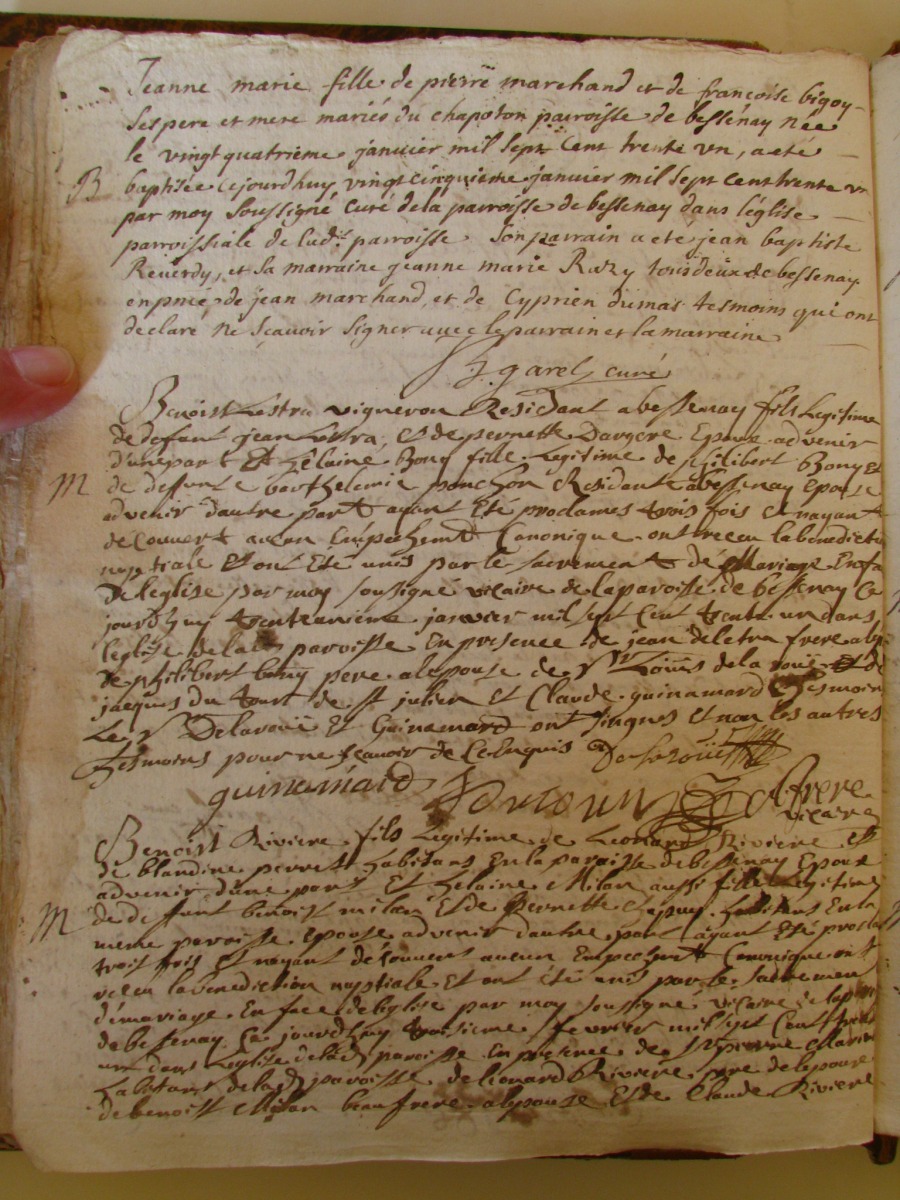 Jeanne marie fille de pierre marchand et de francoise bigoy
ses pere et mere mariés du chapoton parroisse de bessenay née
le vingt quatrieme janvier mil sept cent trente un, a eté
B baptisée cejourdhuy vingt cinquieme janvier mil sept cent trente un
par moy soussigné curé de la parroisse de bessenay dans léglise
parroissiale de lad. parroisse son parrain a eté jean baptiste
Reverdy, et sa marraine jeanne marie Razy tous deux de bessenay
en pnce de jean marchand, et de Cyprien dumas tesmoins qui ont
declaré ne scavoir signer avec le parrain et la marraine
J. garel curé
Benoist Lestra vigneron Residant a bessenay fils Legitime
de defunt jean Lestra, et de pernette Dargere Epoux advenir
d'une part Et helaine Bony fille Legitime de philibert Bony Et
M de deffunte barthelemie ponchon Residante a bessenay Epouse
advenir dautre part ayant Eté proclames trois fois et nayant
decouvert aucun Empechemt Canonique ont receu la benediction
nuptiale Et ont Eté unis par le sacrement de Mariage En fa
de leglise par moy soussigné vicaire de la paroisse de bessenay Ce
jourdhuy trentunieme janvier mil sept Cent trente un dans
leglise de lad. paroisse En presence de jean deletra frere a lep
de philibert bony pere a lepouse de Sr Loüis de la roüe Et de
jacques du tourt de st julien Et Claude guinamard tesmoins
Le Sr Delaroüe Et Guinamard ont signes Et non les autres
tesmoins pour ne scavoir de Ce Enquis Delaroüe
guinamard
vicaire
Benoist Riviere fils Legitime de Leonard Riviere Et
de blandine perret habitans En la paroisse de bessenay Epoux
advenir dune part Et helaine Milan aussi fille Legitime
M de deffunt benoist milan Et de Pernette habitans En la
meme paroisse Epouse advenir dautre part ayant Eté proclam
trois fois Et nayant decouvert aucun Empechemt Canonique ont
receu la benediction nuptiale Et ont Eté unis par le sacrement
de mariage En face de leglise par moy soussigne vicaire de la par
de bessenay Ce jourdhuy troisieme fevrier mil sept Cent trente
un dans Leglise de lad. paroisse En presence de Sr pierre
habitant de lad. paroisse de leonard Riviere pere de lepoux
de benoist Milan beaufrere a lepouse Et de Claude Riviere